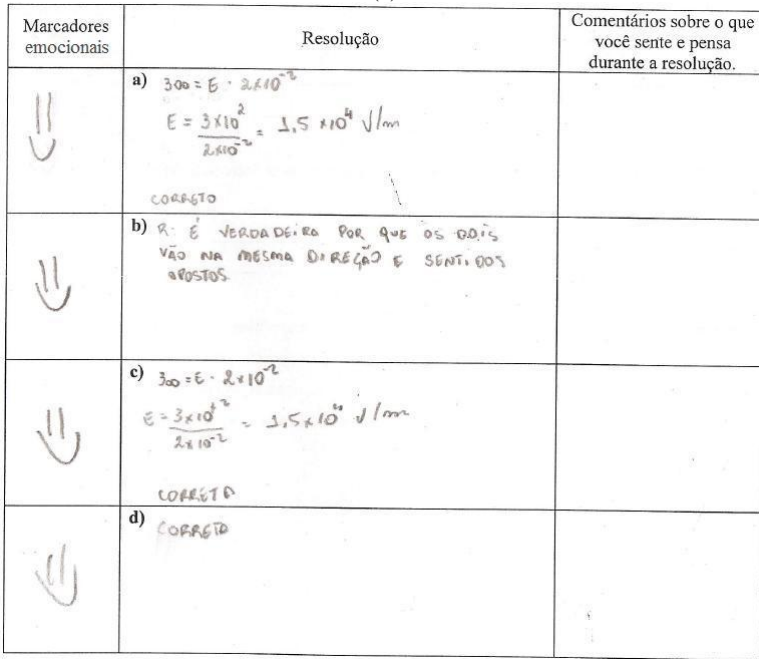 Marcadores
emocionais
Resolução
Comentários sobre o que
você sente e pensa
durante a resolução.
a) 300 = E · 2x10⁻²
E = 3x10² / 2x10⁻² = 1,5 x10⁴ V/m
CORRETO
b) R- É VERDADEIRO POR QUE OS DOIS
VÃO NA MESMA DIREÇÃO E SENTIDOS
OPOSTOS.
c) 300 = E · 2x10⁻²
E = 3x10² / 2x10⁻² = 1,5x10⁴ V/m
CORRETA
d) CORRETO